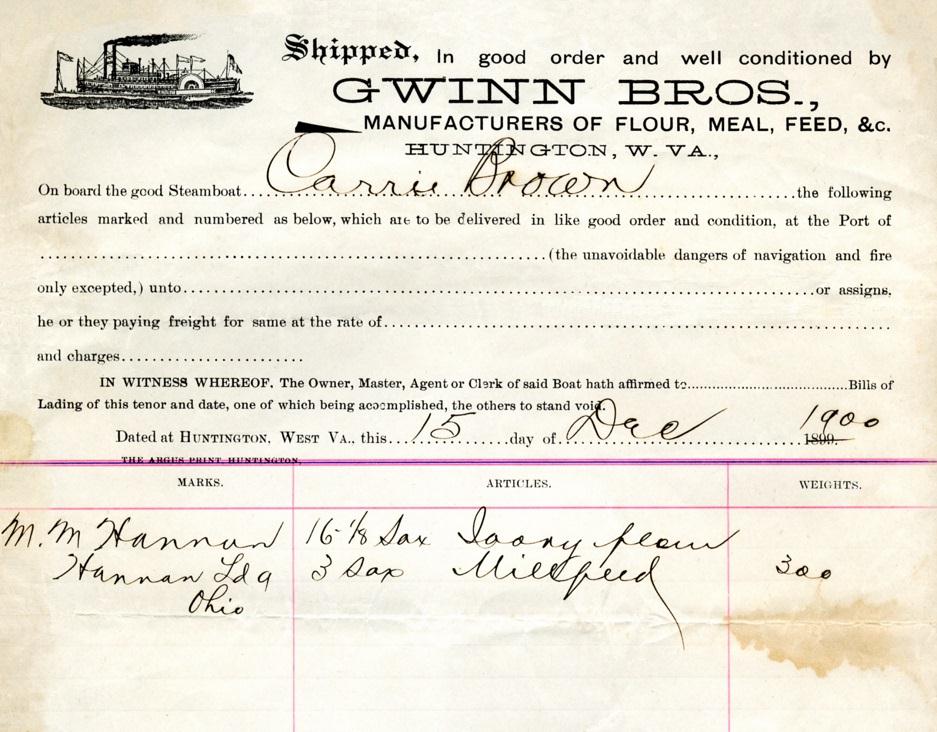 Shipped, In good order and well conditioned by
GWINN BROS.,
MANUFACTURERS OF FLOUR, MEAL, FEED, &c.
HUNTINGTON, W. VA.,
On board the good Steamboat....Carrie Brown....the following
articles marked and numbered as below, which are to be delivered in like good order and condition, at the Port of
....(the unavoidable dangers of navigation and fire
only excepted,) unto....or assigns,
he or they paying freight for same at the rate of....
and charges....
IN WITNESS WHEREOF. The Owner, Master, Agent or Clerk of said Boat hath affirmed to....Bills of
Lading of this tenor and date, one of which being accomplished, the others to stand void.
Dated at HUNTINGTON, WEST VA., this....15....day of....Dec....1900 1899.
THE ARGUS PRINT, HUNTINGTON,
MARKS. ARTICLES. WEIGHTS.
M. M Hannan 16 1/8 Sax Ivory flour
Hannan Ldg 3 Sax Millfeed 300
Ohio